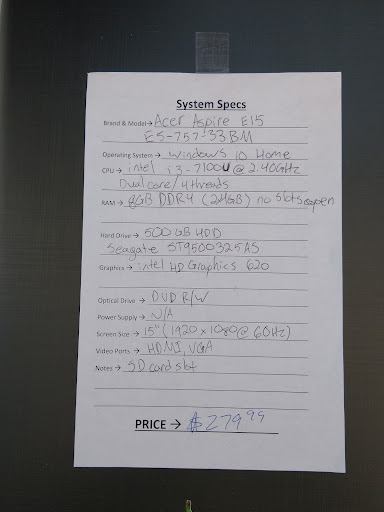 System Specs
Brand & Model→ Acer Aspire E15
E5-757-33BM
Operating System → Windows 10 Home
CPU → intel i3-7100U @ 2.40GHz
Dual core/4threads
RAM → 8GB DDR4 (2x4GB) no slots open
Hard Drive → 500GB HDD
Seagate ST9500325AS
Graphics → intel HD Graphics 620
Optical Drive → DVD R/W
Power Supply → N/A
Screen Size → 15" (1920x1080@60Hz)
Video Ports → HDMI, VGA
Notes → SD card slot
PRICE → $279.99